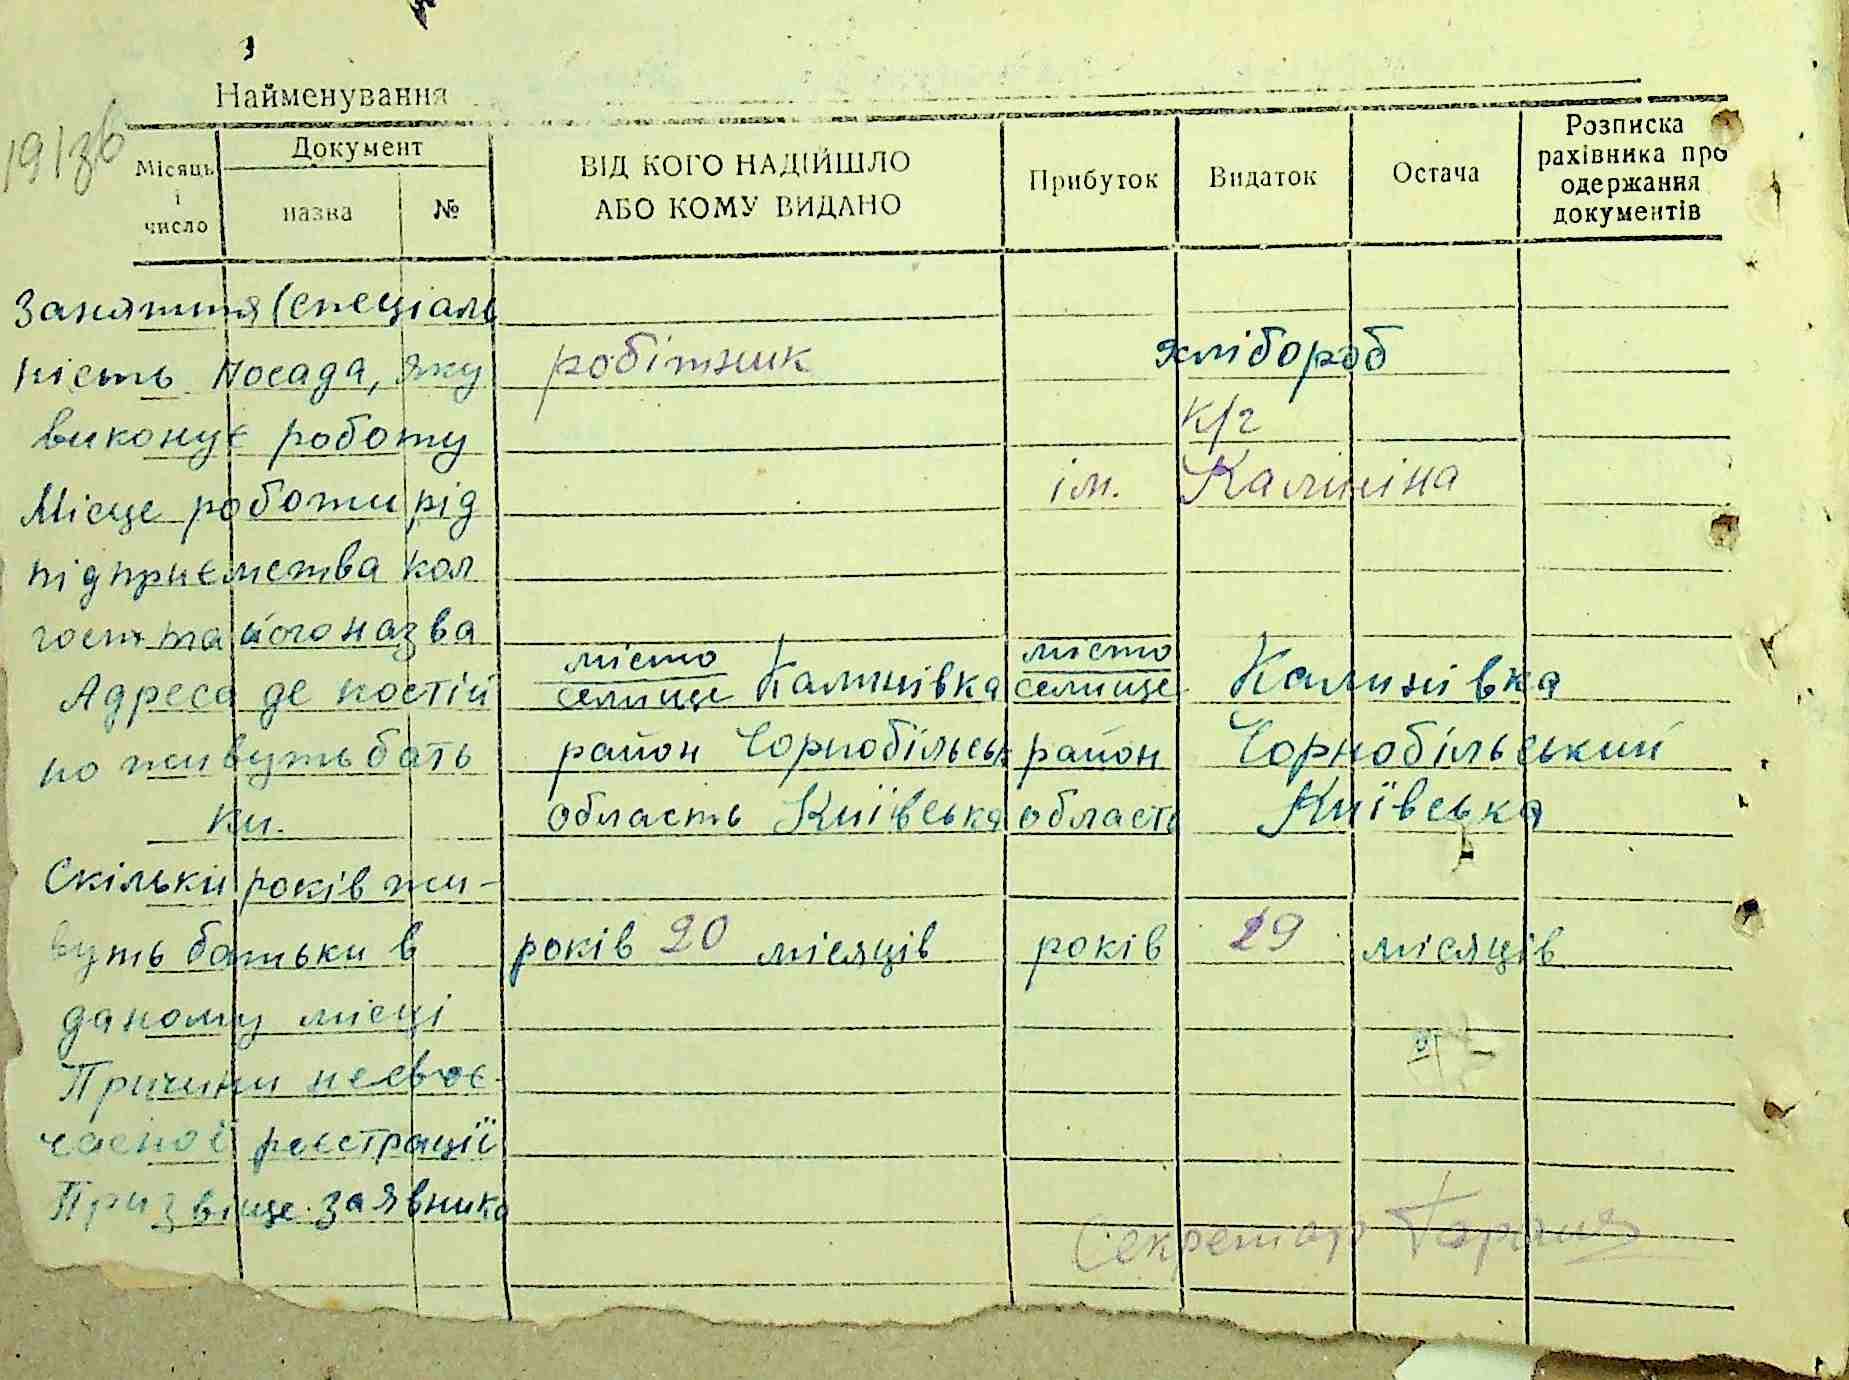 Найменування
Місяць і число
Документ
назва
№
ВІД КОГО НАДІЙШЛО АБО КОМУ ВИДАНО
Прибуток
Видаток
Остача
Розписка рахівника про одержання документів
Заняття (спеціаль
ність посада, яку робітник хлібороб
виконує роботу к/г
Місце роботи рід ім. Калініна
підприємства кол
госп та його назва
місто місто
Адреса де постій селище Калинівка селище Калинівка
но живуть бать район Чорнобільськ район Чорнобільський
ки. область Київська область Київська
Скільки років жи-
вуть батьки в років 20 місяців років 29 місяців
даному місці
Причини несвоє-
часної реєстрації
Призвіще заявника
Секретар